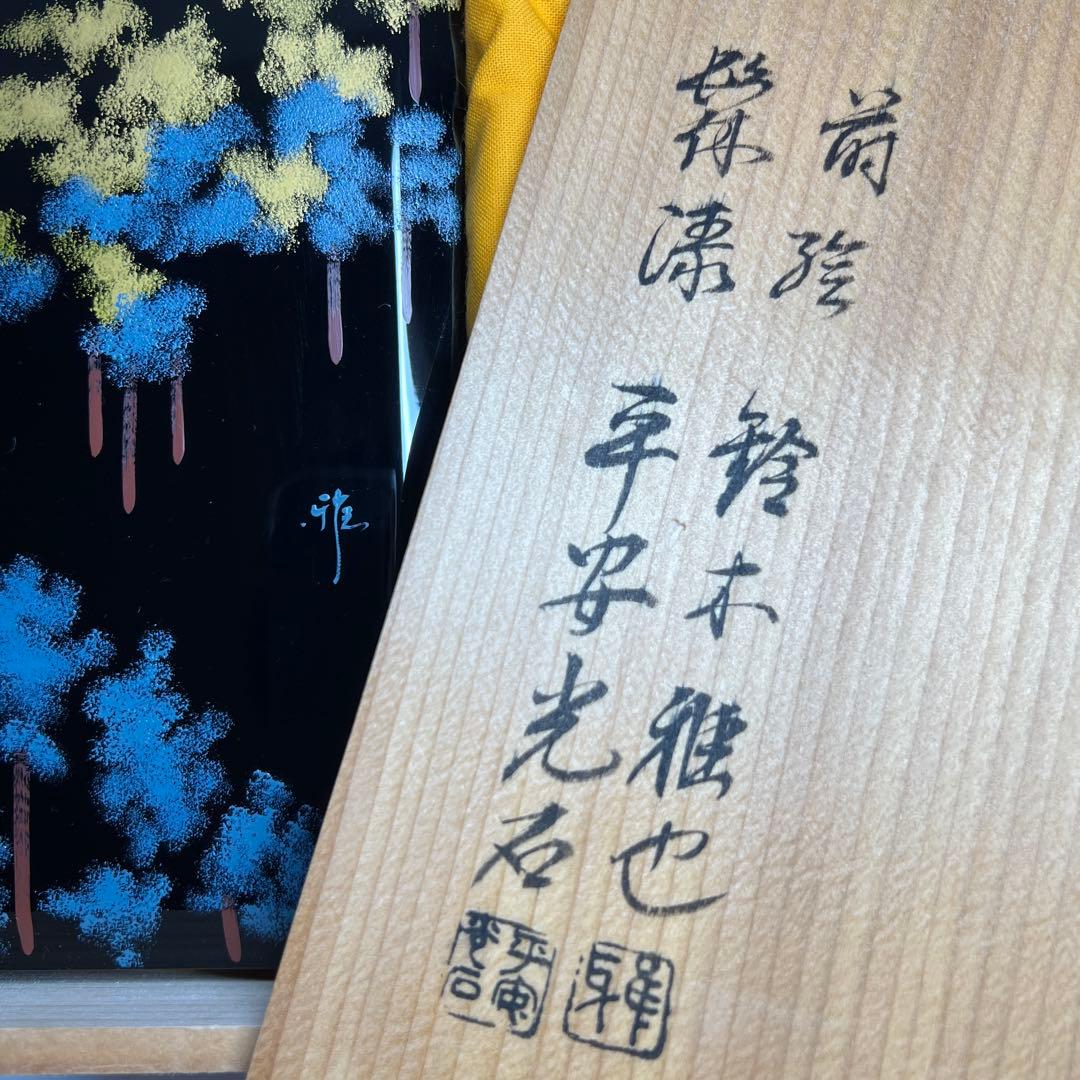 蒔絵 鈴木雅也
髹漆 平安光石
雅
雅